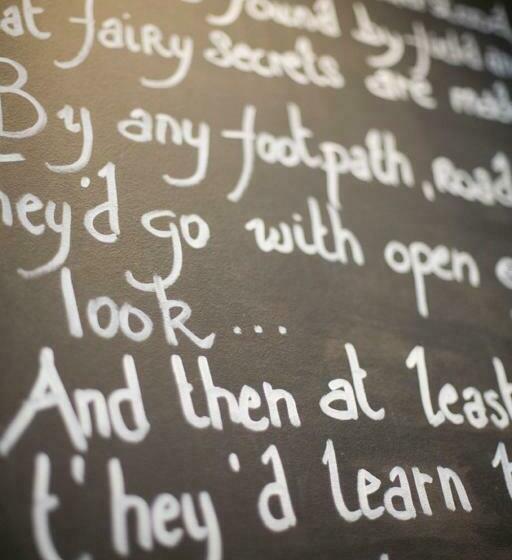 found by field
at fairy secrets are
By any footpath, road
they'd go with open
look...
And then at least
t'hey'd learn